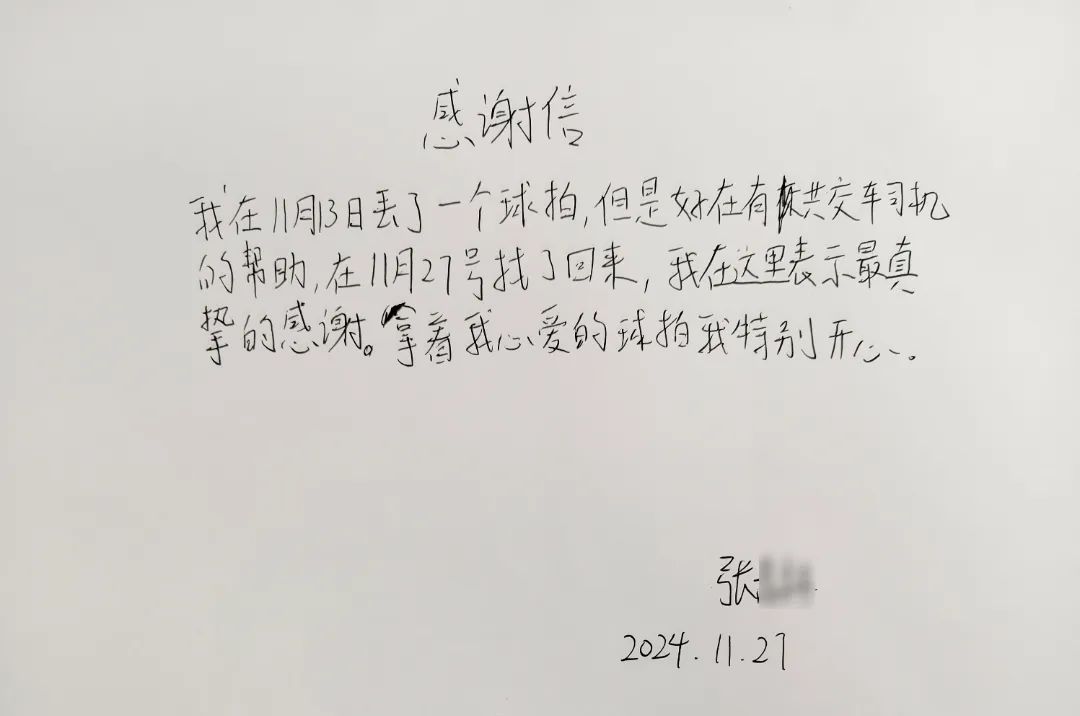 感谢信
我在11月13日丢了一个球拍,但是好在有共交车司机
的帮助,在11月27号找了回来,我在这里表示最真
挚的感谢。拿着我心爱的球拍我特别开心。
张
2024.11.27